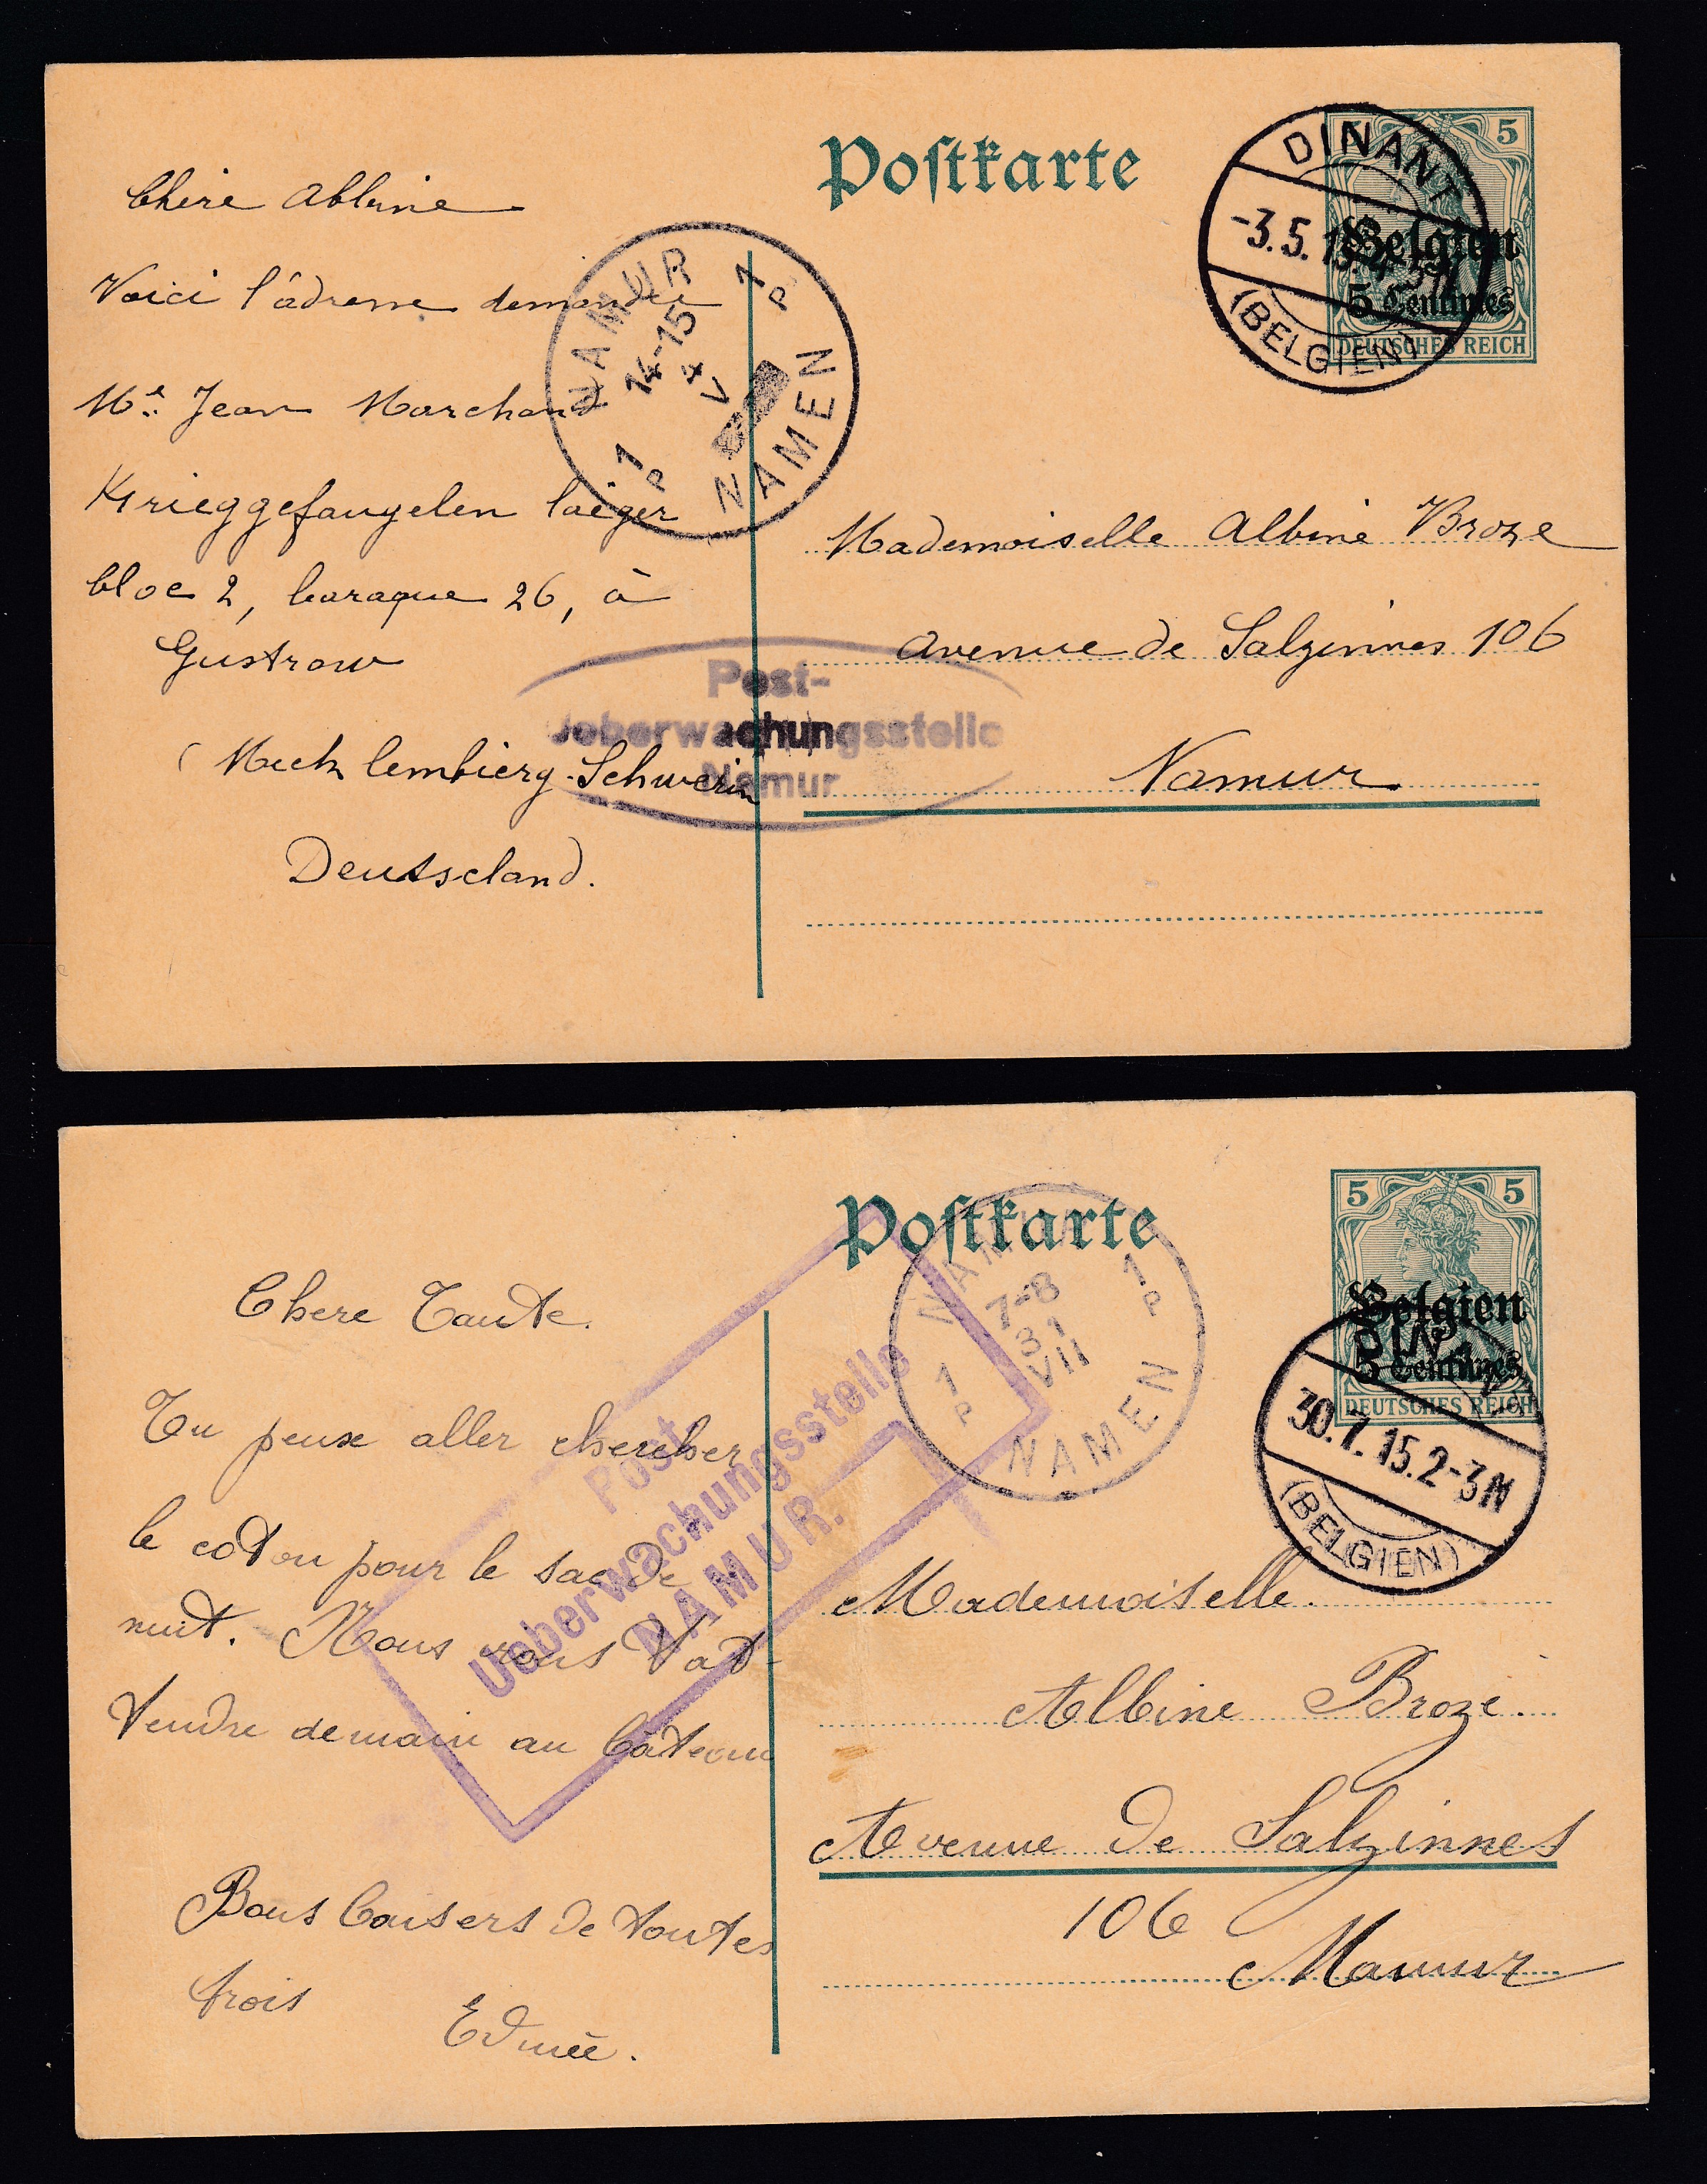 Postkarte
5
DINANT
-3.5.15.4-5N
(BELGIEN)
Belgien
5 Centimes
DEUTSCHES REICH
Chère Albine
Voici l'adresse demandée
Mr. Jean Marchand
Krieggefangelen laëger
bloc 2, baraque 26, à
Gustrow
(Mecklembierg-Schwerin
Deutscland.
NAMUR
14-15
4
V
NAMEN
1
P
1
P
Post-
Ueberwachungsstelle
Namur
Mademoiselle Albine Broze
Avenue de Salzinnes 106
Namur
Postkarte
5 5
Belgien
5 Centimes
DEUTSCHES REICH
30.7.15.2-3N
(BELGIEN)
NAMUR
7-8
31
VII
NAMEN
1
P
1
P
Chere Tante.
Tu peux aller chercher
le coton pour le sac de
nuit. Nous irons t'at-
tendre demain au bateau
Bons baisers de toutes
trois
Edmée.
Post
Ueberwachungsstelle
NAMUR.
Mademoiselle.
Albine Broze.
Avenue de Salzinnes
106
Namur